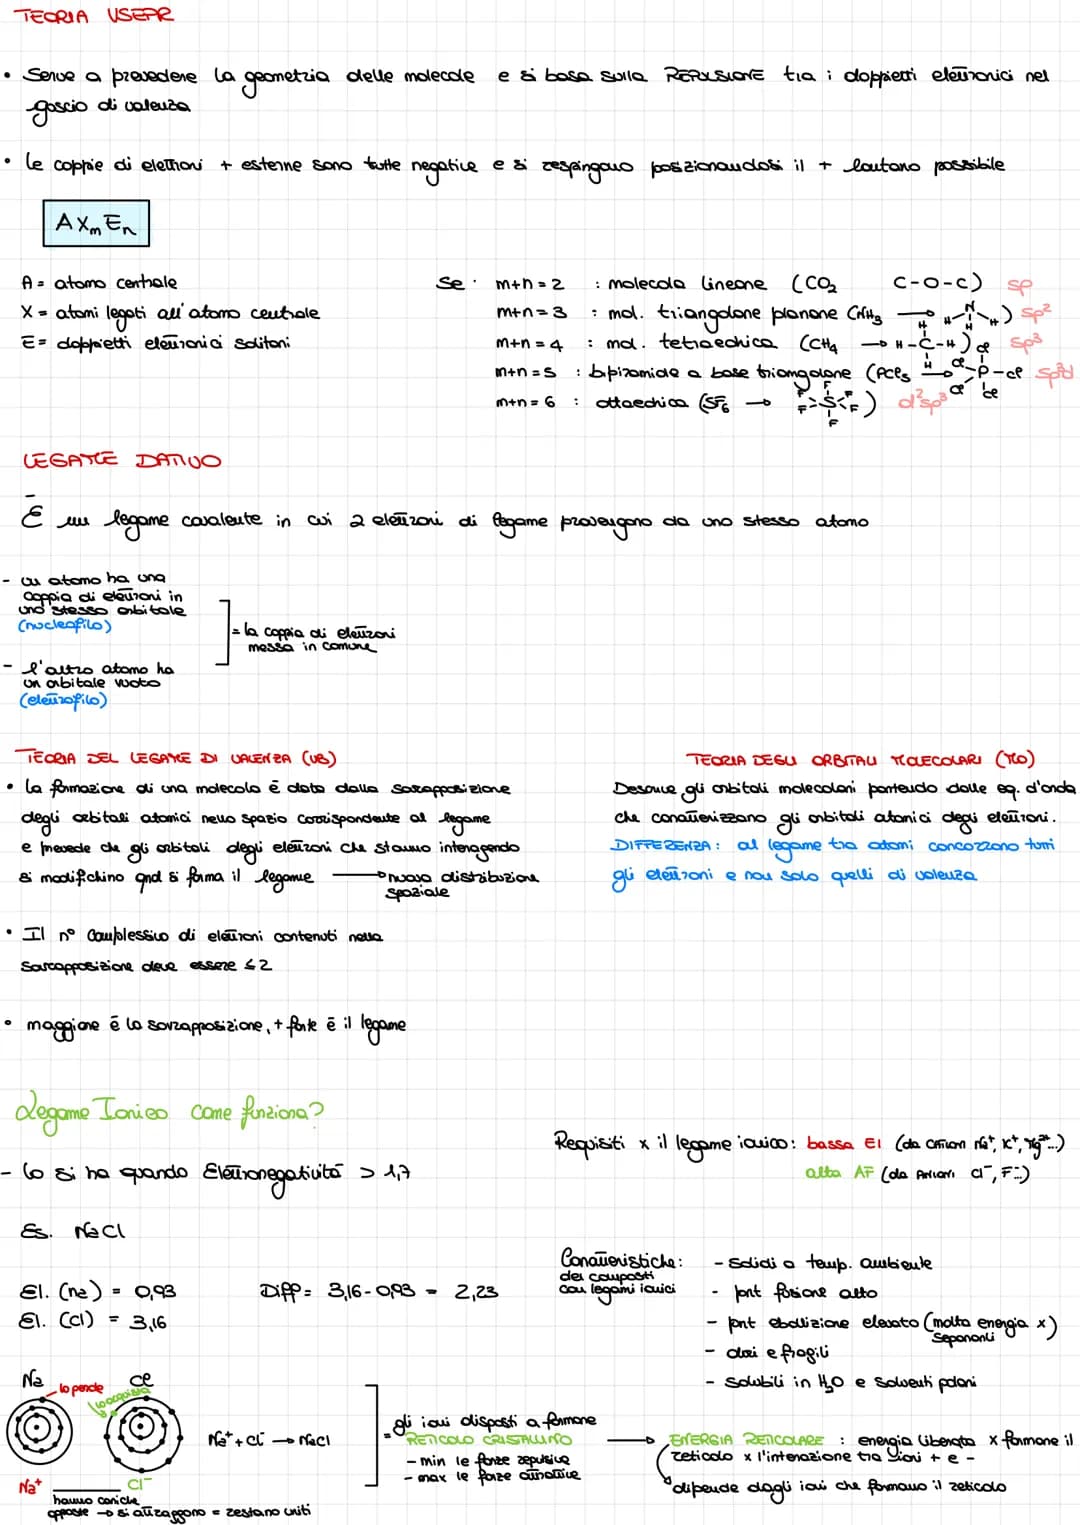 TEORIA VSEPR
• Serve a prevedere la geometria delle molecole e si basa sulla REPULSIONE tra i doppietti elettronici nel
guscio di valenza
• le coppie di elettroni + esterne sono tutte negative e si respingono posizionandosi il + lontano possibile
AXmEn
A = atomo centrale
X = atomi legati all'atomo centrale
E = doppietti elettronici solitari
Se: m+n=2 : molecola lineare (CO2 C-O-C) sp
m+n=3 : mol. triangolare planare (NH3 → H-N-H H) sp2
m+n=4 : mol. tetraedrica (CH4 → H-C-H H H) sp3
m+n=5 : bipiramide a base triangolare (PCl5 → Cl Cl P-Cl Cl Cl) sp3d
m+n=6 : ottaedrica (SF6 → F F F S F F F) d2sp3
LEGAME DATIVO
È un legame covalente in cui 2 elettroni di legame provengono da uno stesso atomo
- un atomo ha una
coppia di elettroni in
uno stesso orbitale
(nucleofilo)
= la coppia di elettroni
messa in comune
- l'altro atomo ha
un orbitale vuoto
(elettrofilo)
TEORIA DEL LEGAME DI VALENZA (VB)
• la formazione di una molecola è data dalla sovrapposizione
degli orbitali atomici nello spazio corrispondente al legame
e prevede che gli orbitali degli elettroni che stanno interagendo
si modifichino qnd si forma il legame → nuova distribuzione
spaziale
• Il n° complessivo di elettroni contenuti nella
sovrapposizione deve essere ≤2
• maggiore è la sovrapposizione, + forte è il legame
TEORIA DEGLI ORBITALI MOLECOLARI (MO)
Descrive gli orbitali molecolari partendo dalle eq. d'onda
che caratterizzano gli orbitali atomici degli elettroni.
DIFFERENZA: al legame tra atomi concorrono tutti
gli elettroni e non solo quelli di valenza
Legame Ionico come funziona?
- lo si ha quando Elettronegatività > 1,7
Es. NaCl
El. (Na) = 0,93
El. (Cl) = 3,16
Diff = 3,16-0,93 = 2,23
Requisiti x il legame ionico: bassa EI (da cationi Na+, K+, Mg2+...)
alta AF (da Anioni Cl-, F-...)
Caratteristiche:
dei composti
con legami ionici
- solidi a temp. ambiente
- pnt fusione alto
- pnt ebollizione elevato (molta energia x)
separarli
- duri e fragili
- solubili in H2O e solventi polari
Na
lo perde
Cl
lo acquista
Na+
Cl-
hanno cariche
opposte → si attraggono = restano uniti
Na+ + Cl- → NaCl
= gli ioni disposti a formare
RETICOLO CRISTALLINO
- min le forze repulsive
- max le forze attrattive
→ ENERGIA RETICOLARE : energia liberata x formare il
reticolo x l'interazione tra ioni + e -
dipende dagli ioni che formano il reticolo